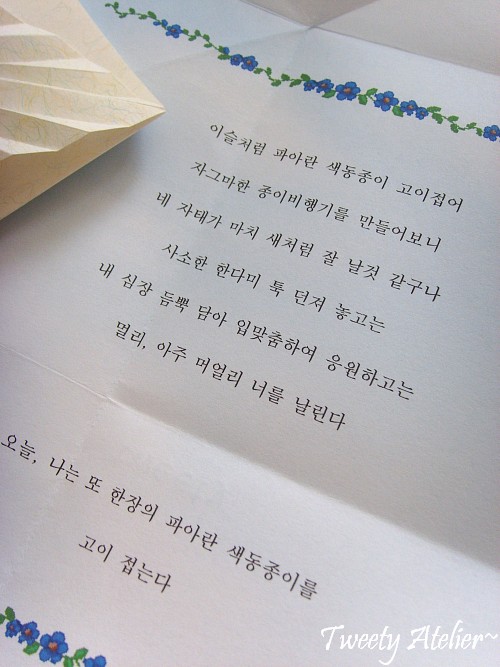 이슬처럼 파아란 색동종이 고이접어
자그마한 종이비행기를 만들어보니
네 자태가 마치 새처럼 잘 날것 같구나
사소한 한다미 툭 던져 놓고는
내 심장 듬뿍 담아 입맞춤하여 응원하고는
멀리, 아주 머얼리 너를 날린다
오늘, 나는 또 한장의 파아란 색동종이를
고이 접는다
Tweety Atelier~